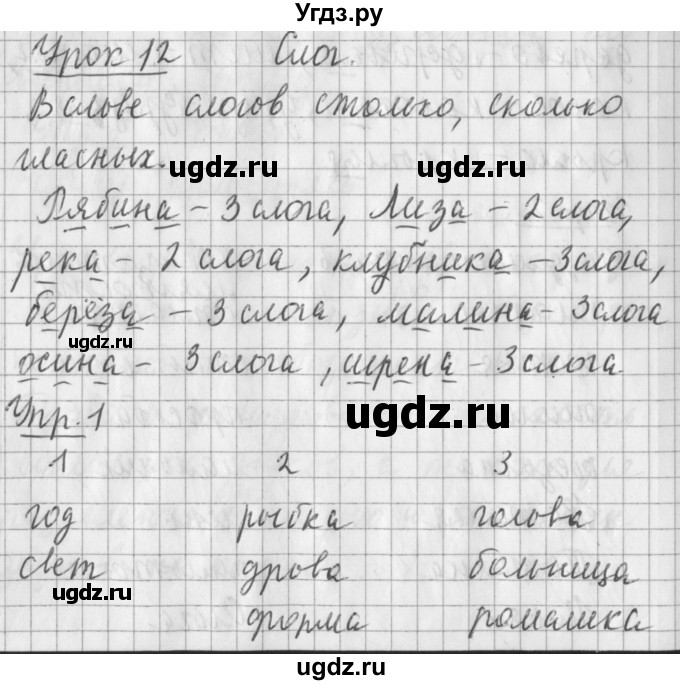 Угдз.ру
Урок 12 Слог.
В слове слогов столько, сколько
гласных.
ugdz.ru ugdz.ru
Рябина - 3 слога, Лиза - 2 слога,
река - 2 слога, клубника - 3 слога,
берёза - 3 слога, малина - 3 слога
осина - 3 слога, ирена - 3 слога.
Упр. 1
ugdz.ru
1 2 3
год рыбка голова
свет дрова больница
ugdz.ru
форма ромашка
ugdz.ru